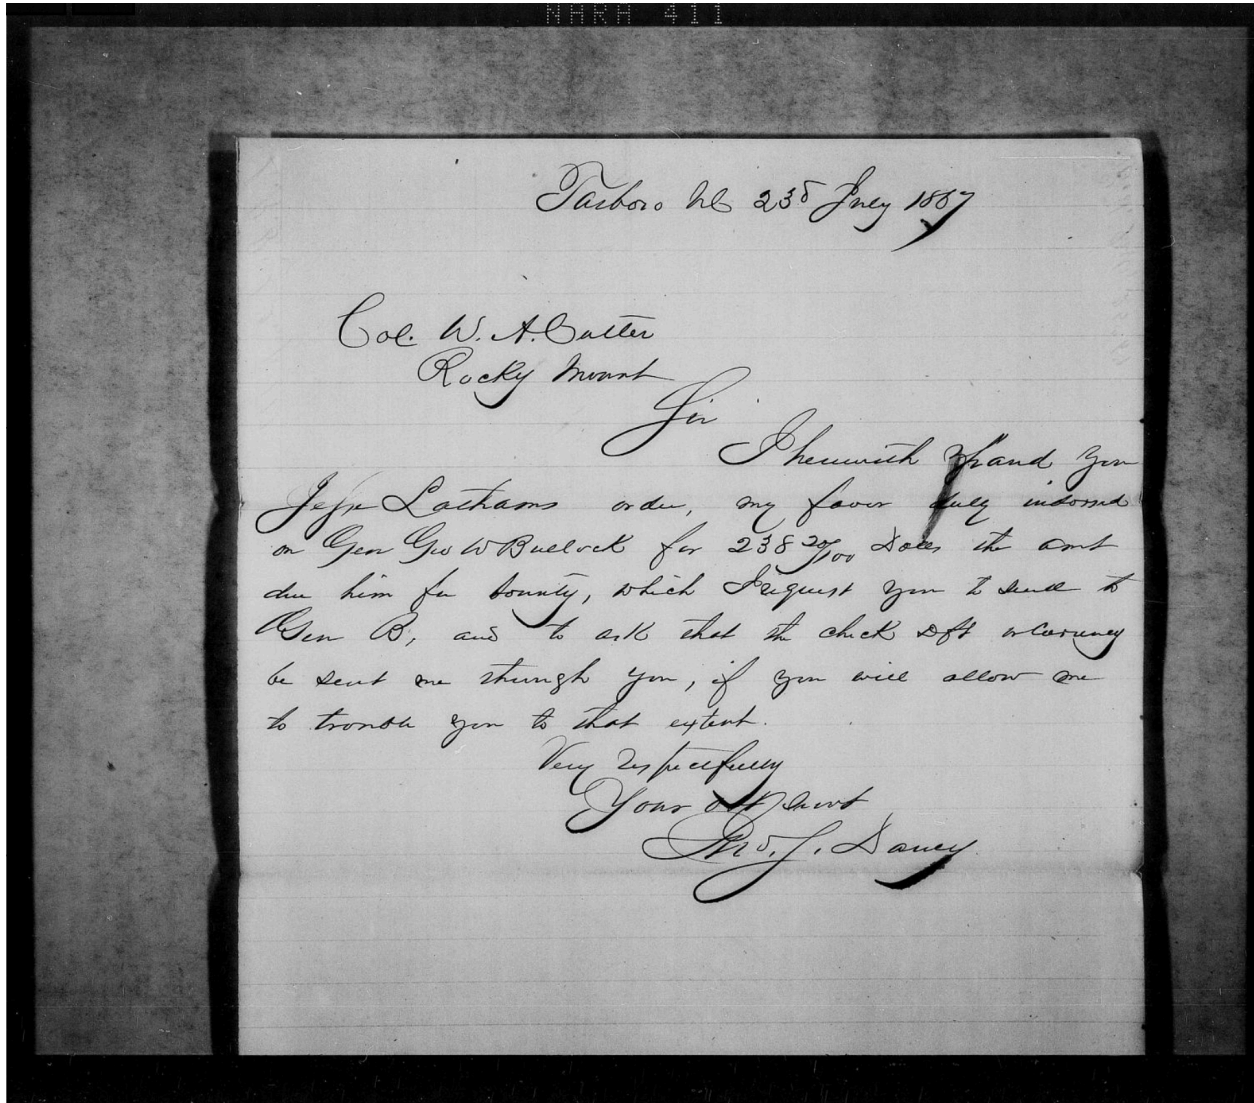 NARA 411
Tarboro NC 23d July 1867
Col. W. A. Cutter
Rocky Mount
Sir
I herewith hand you
Jesse Lathams order, my favor duly indorsed
on Gen Geo W Bullock for 238 20/100 Dolls the amt
due him for bounty, which I request you to send to
Gen B, and to ask that the check Dft or Currency
be sent me through you, if you will allow me
to trouble you to that extent.
Very respectfully
Your obt Servt
Jno. J. Dancy